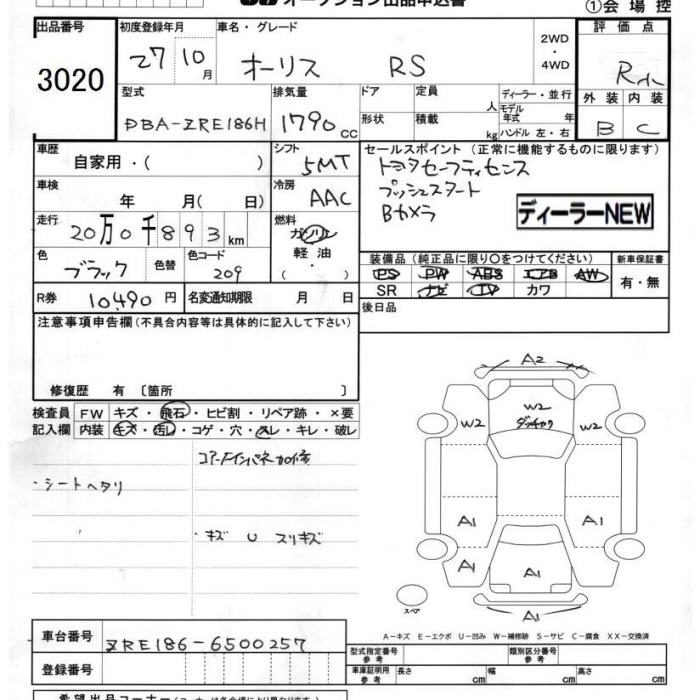 オークション出品申込書
①会場控
出品番号
3020
初度登録年月
27 10月
車名・グレード
オーリス RS
2WD
・
4WD
評価点
R
外装 内装
B C
型式
DBA-ZRE186H
排気量
1790cc
ドア
形状
定員
人
積載
kg
ディーラー・並行
モデル年式 年
ハンドル 左・右
車歴
自家用・( )
シフト
5MT
車検
年 月( 日)
冷房
AAC
走行
20万0千893km
燃料
ガソリン
軽油
( ・ )
色
ブラック
色替
色コード
209
R券 10,490円
名変通知期限 月 日
セールスポイント(正常に機能するものに限ります)
トヨタセーフティセンス
プッシュスタート
Bカメラ
ディーラーNEW
装備品(純正品に限り〇をつけてください)
PS PW ABS エアB AW
SR ナビ TV カワ
新車保証書
有・無
後日品
注意事項申告欄(不具合内容等は具体的に記入して下さい)
修復歴 有〔箇所 〕
検査員記入欄
FW キズ・飛石・ヒビ割・リペア跡・×要
内装 キズ・汚レ・コゲ・穴・スレ・キレ・破レ
コアサポートインパネ加修
シートヘタリ
キズ U スリキズ
A2
W2
W2
W2
A1
A1
A1
A1
A1
スペア
A-キズ E-エクボ U-凹み W-補修跡 S-サビ C-腐食 XX-交換済
車台番号 ZRE186-6500257
登録番号
型式指定番号 参考
類別区分番号 参考
車庫証明用 参考
長さ cm 幅 cm 高さ cm
希望出品コーナー